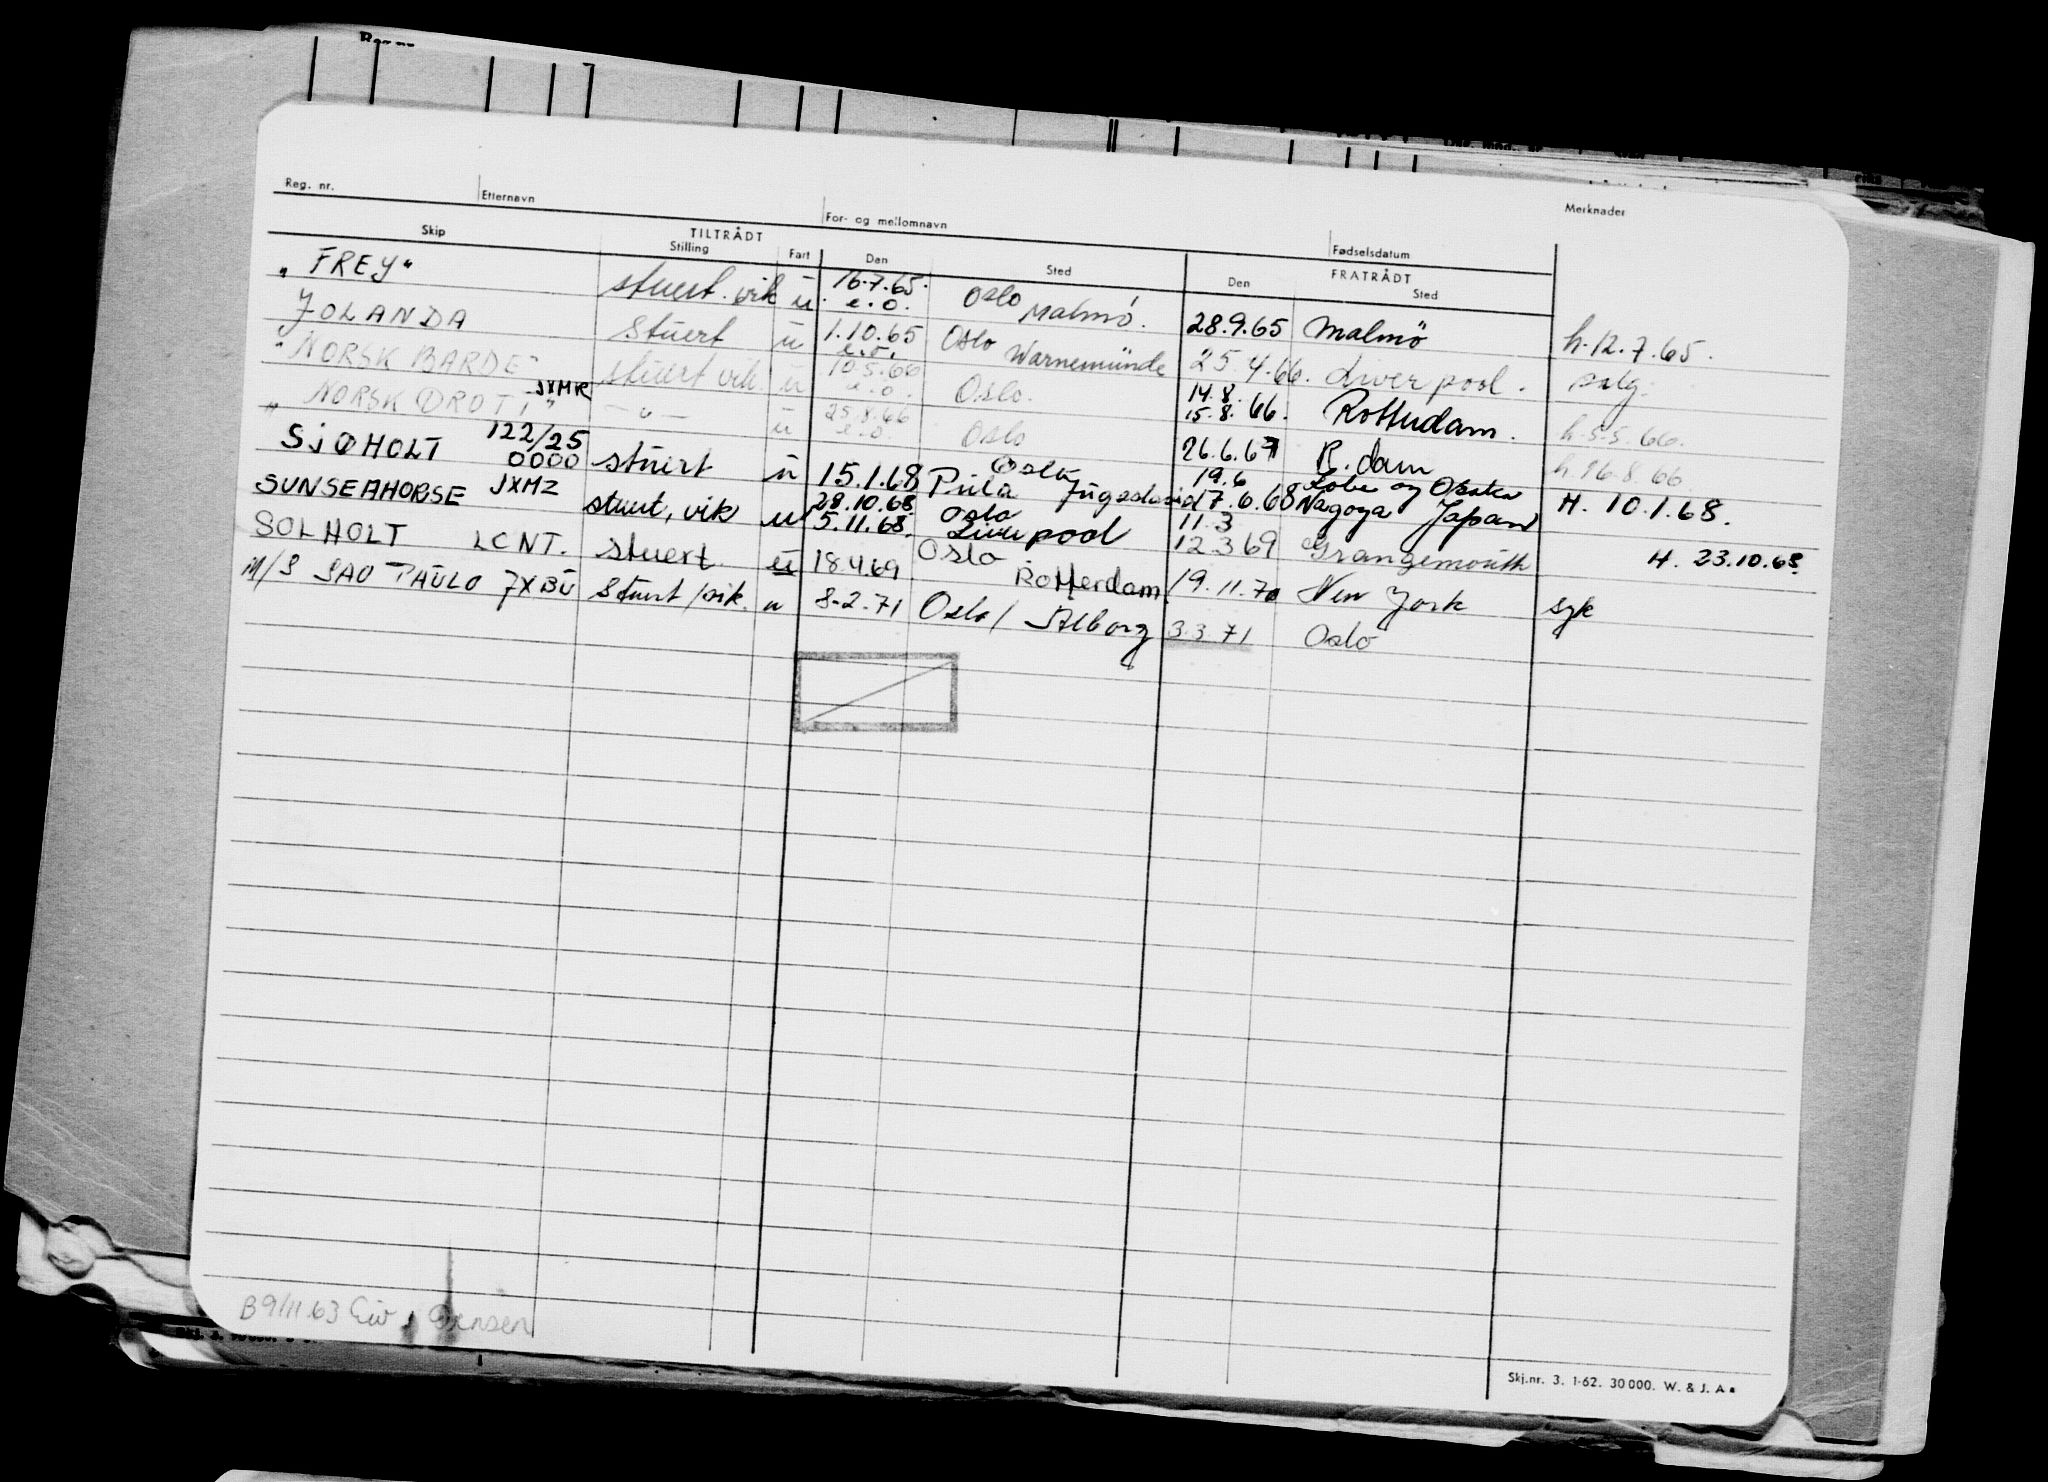 Reg. nr. Etternavn For- og mellomnavn Fødselsdatum Merknader
Skip TILTRÅDT FRATRÅDT
Stilling Fart Den Sted Den Sted
"FREY" stuert. vik u. 16.7.65. e.o. Oslo Malmö. 28.9.65 Malmö h. 12.7.65.
JOLANDA stuert u 1.10.65 e.o. Oslo Warnemünde 25.4.66. Liverpool. salg.
"NORSK BARDE" stuert vik. u 10.5.66 e.o. Oslo. 14.8. 15.8. 66. Rotterdam. h. 5.5.66.
"NORSK DROTT" JXMR — u — u 25.8.66 e.o. Oslo 26.6.67 R.dam h. 16.8.66
SJØHOLT 122/25 0000 stuert u 15.1.68 Oslo Pula Jugoslavia 19.6 Kobe og Osaka H. 10.1.68.
SUNSEAHORSE JXMZ stuert, vik u 28.10.68. 5.11.68. Oslo Liverpool 17.6.68 Nagoya Japan H. 23.10.68.
SOLHOLT LCNT. stuert u 18.4.69 Oslo Rotterdam 11.3 12.3.69 Grangemouth
M/S SAO PAULO JXBU Stuert/vik. u 8-2.71 Oslo/ Ålborg 19.11.70 New York syk
3.3.71 Oslo
B 9/11.63 Eiv. Jensen
Skj.nr. 3. 1-62. 30000. W. & J. A.